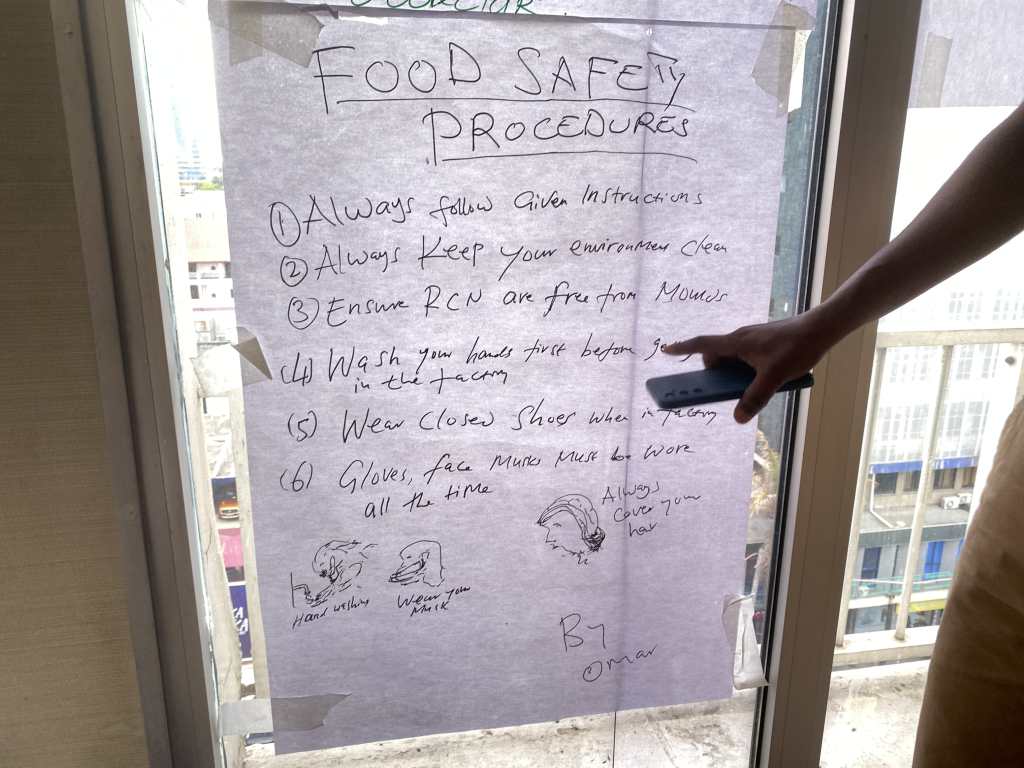 FOOD SAFETY
PROCEDURES
(1) Always follow Given Instructions
(2) Always Keep your environment clean
(3) Ensure RCN are free from Moulds
(4) Wash your hands first before
in the factory
(5) Wear Closed Shoes when in factory
(6) Gloves, face Masks Must be wore
all the time
Always
cover your
hair
Hand washing
Wear your
Mask
By
Omar